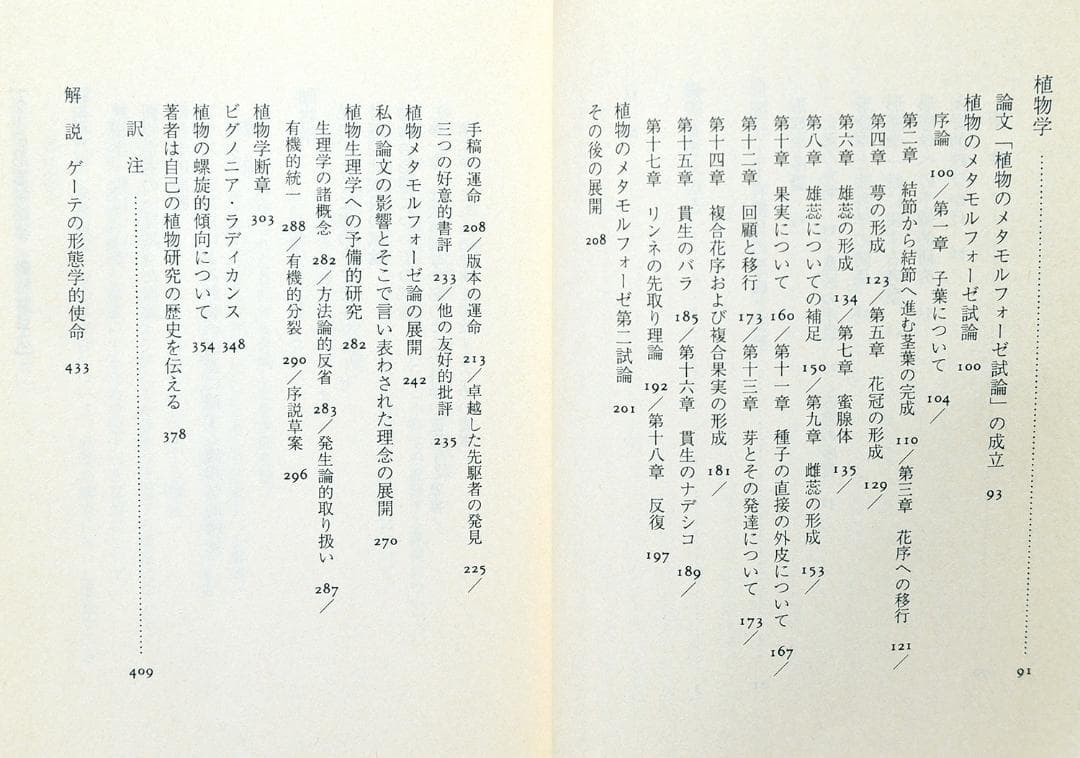 植物学……………………………………91
論文「植物のメタモルフォーゼ試論」の成立 93
植物のメタモルフォーゼ試論 100
序論 100／第一章 子葉について 104／
第二章 結節から結節へ進む茎葉の完成 110／第三章 花序への移行 121／
第四章 萼の形成 123／第五章 花冠の形成 129／
第六章 雄蕊の形成 134／第七章 蜜腺体 135／
第八章 雄蕊についての補足 150／第九章 雌蕊の形成 153／
第十章 果実について 160／第十一章 種子の直接の外皮について 167／
第十二章 回顧と移行 173／第十三章 芽とその発達について 173／
第十四章 複合花序および複合果実の形成 181／
第十五章 貫生のバラ 185／第十六章 貫生のナデシコ 189／
第十七章 リンネの先取り理論 192／第十八章 反復 197
植物のメタモルフォーゼ第二試論 201
その後の展開 208
手稿の運命 208／版本の運命 213／卓越した先駆者の発見 225／
三つの好意的書評 233／他の友好的批評 235
植物メタモルフォーゼ論の展開 242
私の論文の影響とそこで言い表わされた理念の展開 270
植物生理学への予備的研究 282
生理学の諸概念 282／方法論的反省 283／発生論的取り扱い 287／
有機的統一 288／有機的分裂 290／序説草案 296
植物学断章 303
ビグノニア・ラディカンス 348
植物の螺旋的傾向について 354
著者は自己の植物研究の歴史を伝える 378
訳 注……………………………………409
解 説 ゲーテの形態学的使命 433